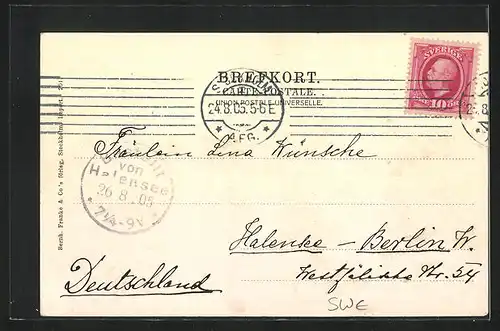 BREFKORT.
CARTE POSTALE.
UNION POSTALE UNIVERSELLE.
SVERIGE
10 ÖRE
24.8.05.5-6E
AFG.
Fräulein Lina Wünsche
von
Halensee
26 8.05
7¼-9V
Halensee – Berlin W.
Westfälische Str. 54
Deutschland
SWE
Bernh. Franke & Co's förlag, Stockholm